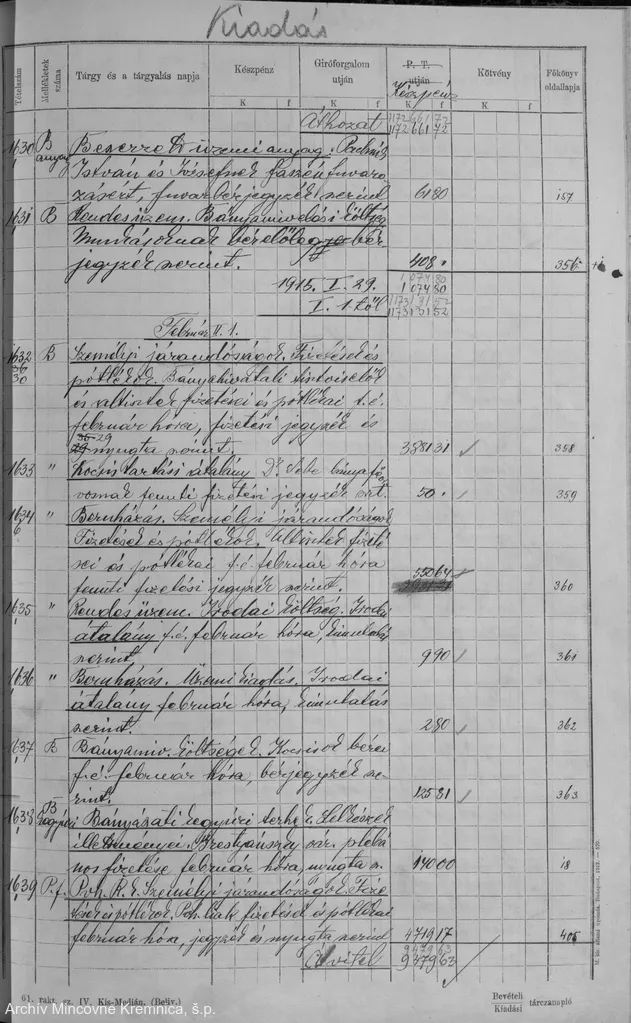 Kiadás
Tételszám
Mellékletek száma
Tárgy és a tárgyalás napja
Készpénz
Giróforgalom útján
P. T. útján
Készpénz
Kötvény
Főkönyv oldallapja
K f K f K f K f
Áthozat 1172661 72
1172661 72
1630 B
István és Józsefnek faszén fuvaro
zásért, fuvarbérjegyzék szerint 61 80 157
1631 B Rendes üzem. Bányamivelési költség
Munkásoknak bérelőleg bér
jegyzék szerint. 408 . 356
1915. I. 29. 1 074 80
1 074 80
I. 1 től 1173131 52
1173131 52
Február II. 1.
1632 B Személyi járandóságok. Fizetések és
pótlékok. Bányahivatali tisztviselők
és altisztek fizetései és pótlékai f. é.
február hóra, fizetési jegyzék és
nyugta szerint. 3881 31 358
1633 " Kocsi tartási átalány Dr.
fenti fizetési jegyzék 50 . 359
1634 " Beruházás. Személyi járandóságok
Fizetések és pótlékok. Altisztek fizeté
sei és pótlékai f. é. február hóra
fenti fizetési jegyzék szerint. 550 64 360
1635 " Rendes üzem. Irodai költség. Irodai
átalány f. é. február hóra, kimutatás
szerint, 9 90 361
1636 " Beruházás. Üzemi kiadás. Irodai
átalány február hóra, kimutatás
szerint. 2 80 362
1637 B Bányamiv. költségek. Kocsisok bérei
f. é. február hóra, bérjegyzék sze
rint. 125 81 363
1638 B Bányászati kegyúri terhek. Lelkészek
illetményei.
nos fizetése február hóra, nyugta sz. 140 00 18
1639 P. f. Poh. K. é. Személyi járandóságok. Fize
tések és pótlékok. fizetései és pótlékai
február hóra, jegyzék és nyugta szerint 4719 17 405
9479 63
Átvitel 9479 63
61. rakt. sz. IV. Kis-Medián. (Beliv.)
Bevételi
Kiadási
tárczanapló
Archív Mincovne Kremnica, š.p.